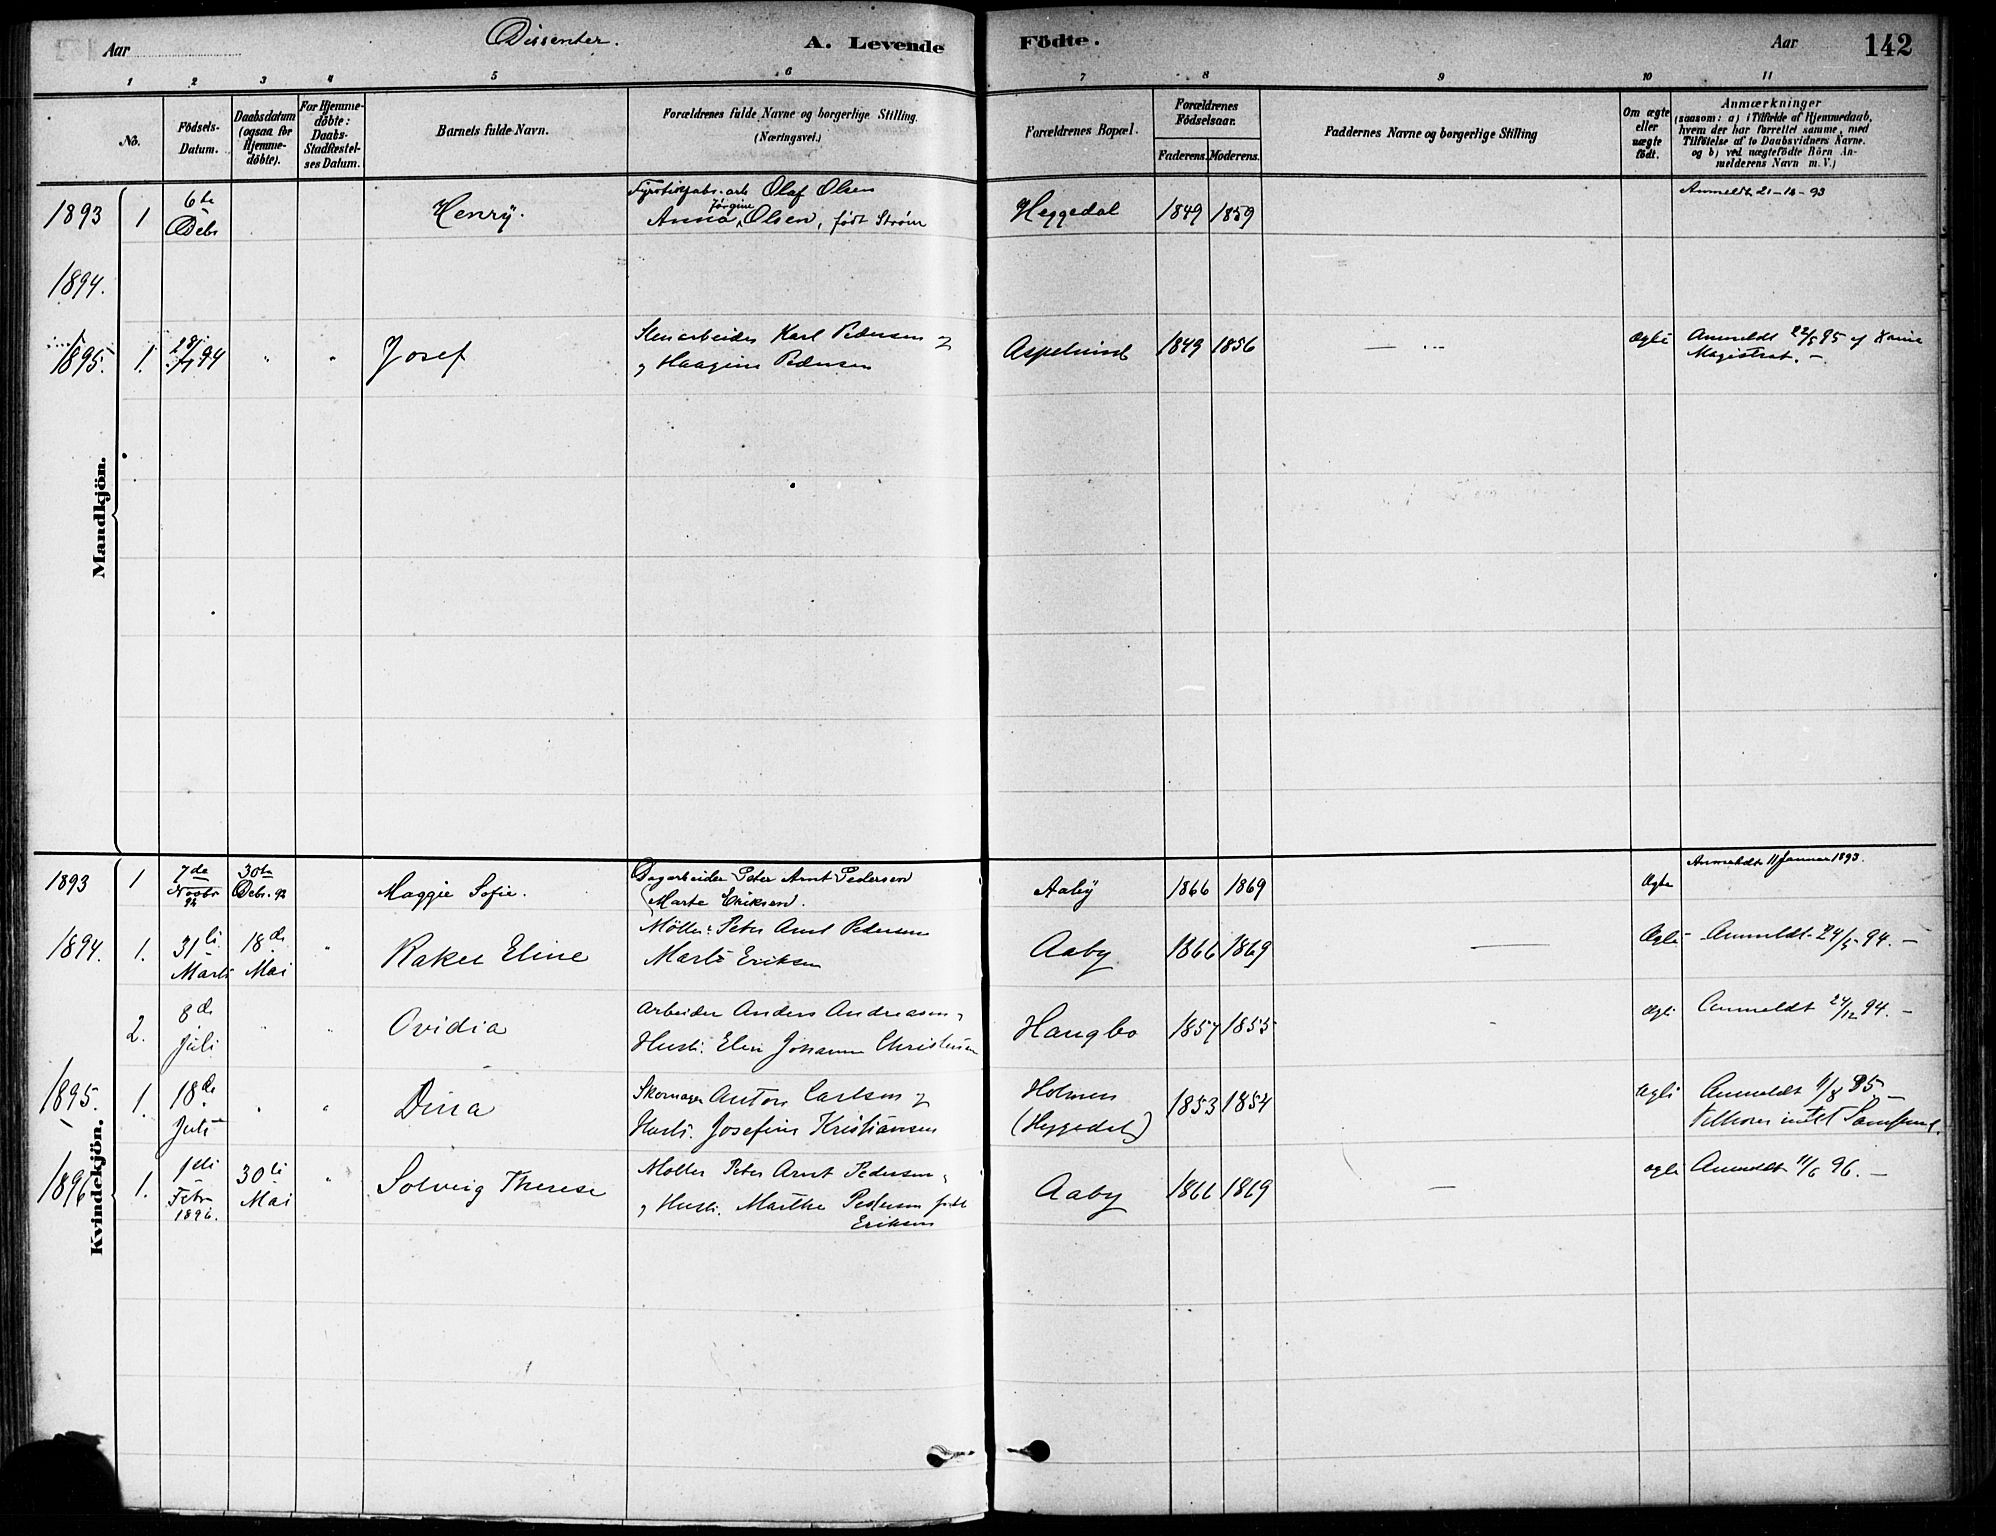 Aar
Dissenter.
A. Levende Födte.
Aar
142
1 2 3 4 5 6 7 8 9 10 11
No.
Födsels-
Datum.
Daabsdatum
(ogsaa for
Hjemme-
döbte).
For Hjemme-
döbte:
Daabs-
Stadfæstel-
ses Datum.
Barnets fulde Navn.
Forældrenes fulde Navne og borgerlige Stilling.
(Næringsvei.)
Forældrenes Bopæl.
Forældrenes
Födselsaar.
Faderens. Moderens.
Faddernes Navne og borgerlige Stilling
Om ægte
eller
uægte
födt.
Anmærkninger
(saasom: a) i Tilfælde af Hjemmedaab,
hvem der har forrettet samme, med
Tilföielse af to Daabsvidners Navne.
og b) ved uægtefödte Börn An-
melderens Navn m. V.)
Mandkjön.
1893 1 6te Debr Henry. Olaf Olsen Heggedal 1849 1859 Anmeldt 21-10-93
Anna Jörgine Olsen, født Strøm
1894.
1895. 1. 28/ 94 " " Josef Stenarbeider Karl Pedersen og Aspelund 1849 1856 — Ægte Anmeldt 22/5 95 af
og Haagine Pedersen Magistrat. -
Kvindekjön.
1893 1 7de Novbr 92 30te Debr. 92 Maggie Sofie. Dagarbeider Peter Arnt Pedersen Aaby 1866 1869 Ægte Anmeldt 11 Januar 1893.
Marte Eriksen.
1894. 1. 31te Marts 18de Mai " Rakel Eline Møller Peter Arnt Pedersen Aaby 1866 1869 — Ægte Anmeldt 24/5 94. -
Marte Eriksen
2. 8de Juli " " Ovidia Arbeider Anders Andreasen Haugbo 1857 1855 - Ægte Anmeldt 24/12 94. -
Hustr. Johanne Christensen
1895. 1. 18de Juli " " Dina Skomager Anton Carlsen og Holmen 1853 1854 Ægte Anmeldt 95. -
Hustr. Josefine Kristiansen (Heggedal)
1896 1. 1ste Febr 1896. 30te Mai " Solveig Therese Møller Peter Arnt Pedersen Aaby 1866 1869 — Ægte Anmeldt 11/6 96. -
og Hustr. Marthe Pedersen født
Eriksen